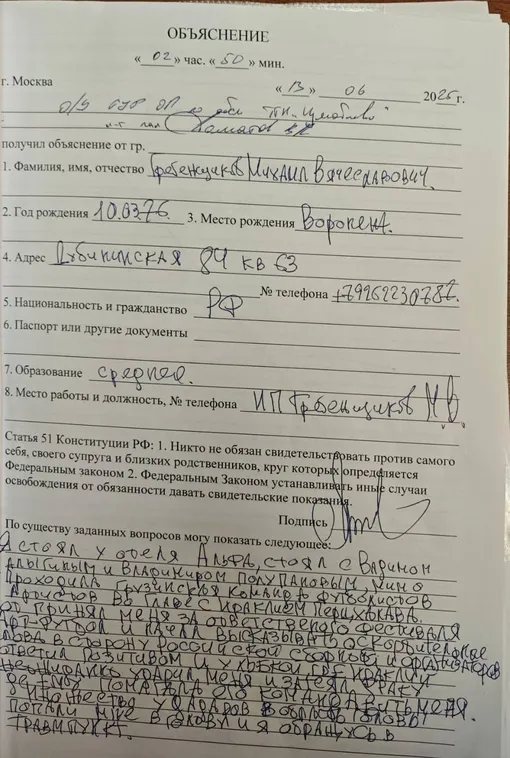 ОБЪЯСНЕНИЕ
« 02 » час. « 50 » мин.
г. Москва
« 13 » 06 2025 г.
о/у ОУР ОП по
к-т пол
получил объяснение от гр.
1. Фамилия, имя, отчество Гребенщиков Михаил Вячеславович.
2. Год рождения 10.03.76. 3. Место рождения Воронеж.
4. Адрес Дубининская 84 кв 63
№ телефона
5. Национальность и гражданство РФ
6. Паспорт или другие документы
7. Образование среднее.
8. Место работы и должность, № телефона ИП Гребенщиков М.В.
Статья 51 Конституции РФ: 1. Никто не обязан свидетельствовать против самого
себя, своего супруга и близких родственников, круг которых определяется
Федеральным законом 2. Федеральным Законом устанавливать иные случаи
освобождения от обязанности давать свидетельские показания.
Подпись
По существу заданных вопросов могу показать следующее:
Я стоял у отеля Альфа, стоял с Вадимом
и Владимиром Полупановым, мимо
проходила грузинская команда футболистов
артистов во главе с Ираклием Пирцхалава.
Он принял меня за ответственного фестиваля
Арт-футбол и начал высказывать оскорбительные
слова в сторону российской сборной и организаторов
ответил позитивом и улыбкой где Ираклий
неожиданно ударил меня и затеял драку
помогала его команда бить меня.
множества ударов в область головы
попали мне в и я обращусь в
травмпункт.